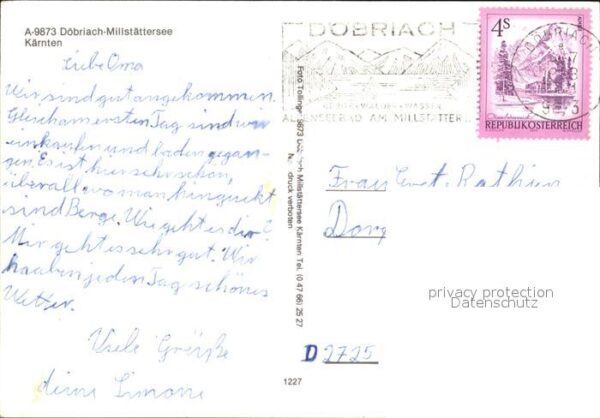 A-9873 Döbriach-Millstättersee
Kärnten
Liebe Oma
Wir sind gut angekommen.
Gleich am ersten Tag sind wir
einkaufen und baden gegan-
gen. Es ist hier sehr schön,
überall wo man hinguckt
sind Berge. Wie geht es dir?
Mir geht es sehr gut. Wir
haaben jeden Tag schönes
Wetter.
Viele Grüße
deine Simone
DÖBRIACH
BERGE • WÄLDER • WASSER
AM MILLSTÄTTER
4S
REPUBLIK ÖSTERREICH
DÖBRIACH
Foto Tollinger 9873 Döbriach Millstättersee Kärnten Tel. (0 47 66) 25 27
druck verboten
Frau
Dorf
privacy protection
Datenschutz
D 2725
1227